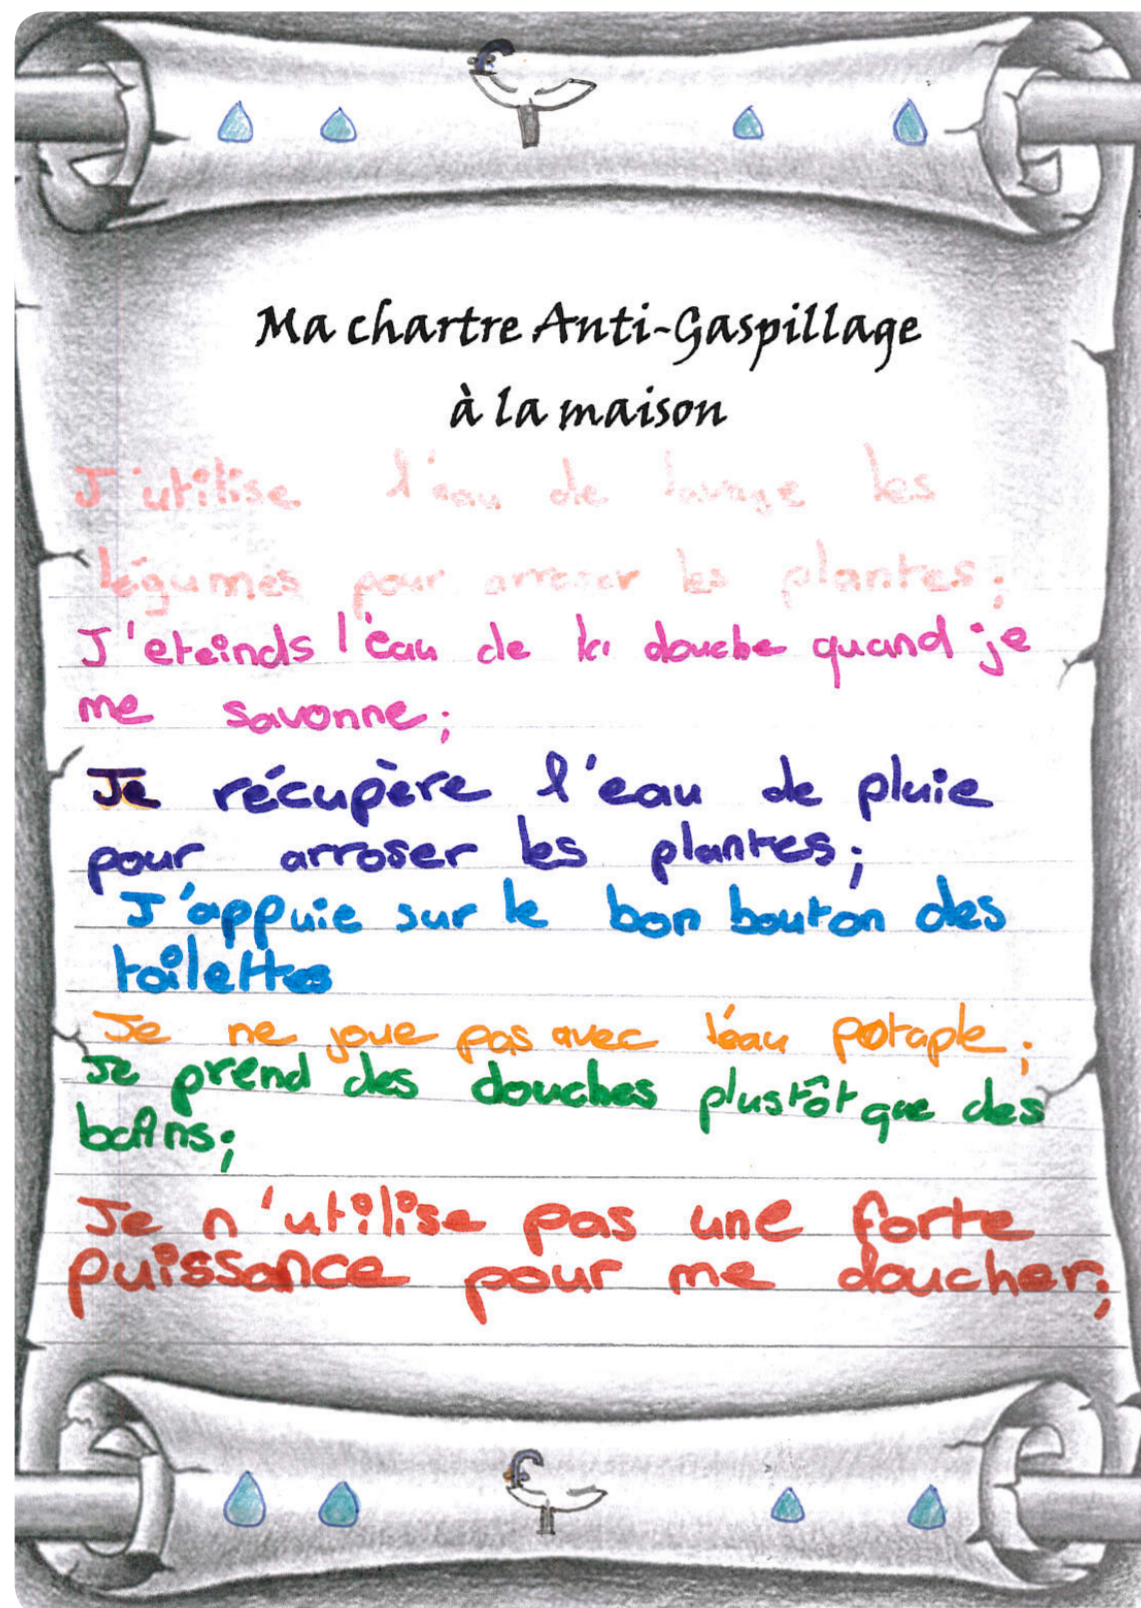 Ma chartre Anti-Gaspillage
à la maison
J'utilise l'eau de lavage les
légumes pour arroser les plantes;
J'eteinds l'eau de la douche quand je
me savonne;
Je récupère l'eau de pluie
pour arroser les plantes;
J'appuie sur le bon bouton des
toilettes
Je ne joue pas avec l'eau potaple;
Je prend des douches plustôt que des
bains;
Je n'utilise pas une forte
puissance pour me doucher;